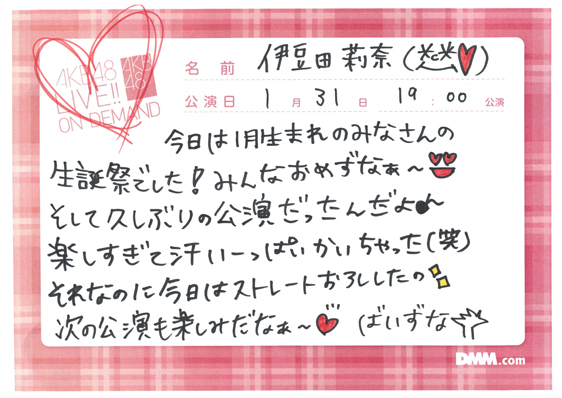 AKB48
LIVE!!
ON DEMAND
AKB
48
名前 伊豆田莉奈
公演日 1月31日 19:00公演
今日は1月生まれのみなさんの
生誕祭でした!みんなおめずなぁ~
そして久しぶりの公演だったんだよ
楽しすぎて汗いーっぱいかいちゃった(笑)
それなのに今日はストレートおろししたの
次の公演も楽しみだなぁ~ ばいずな
DMM.com